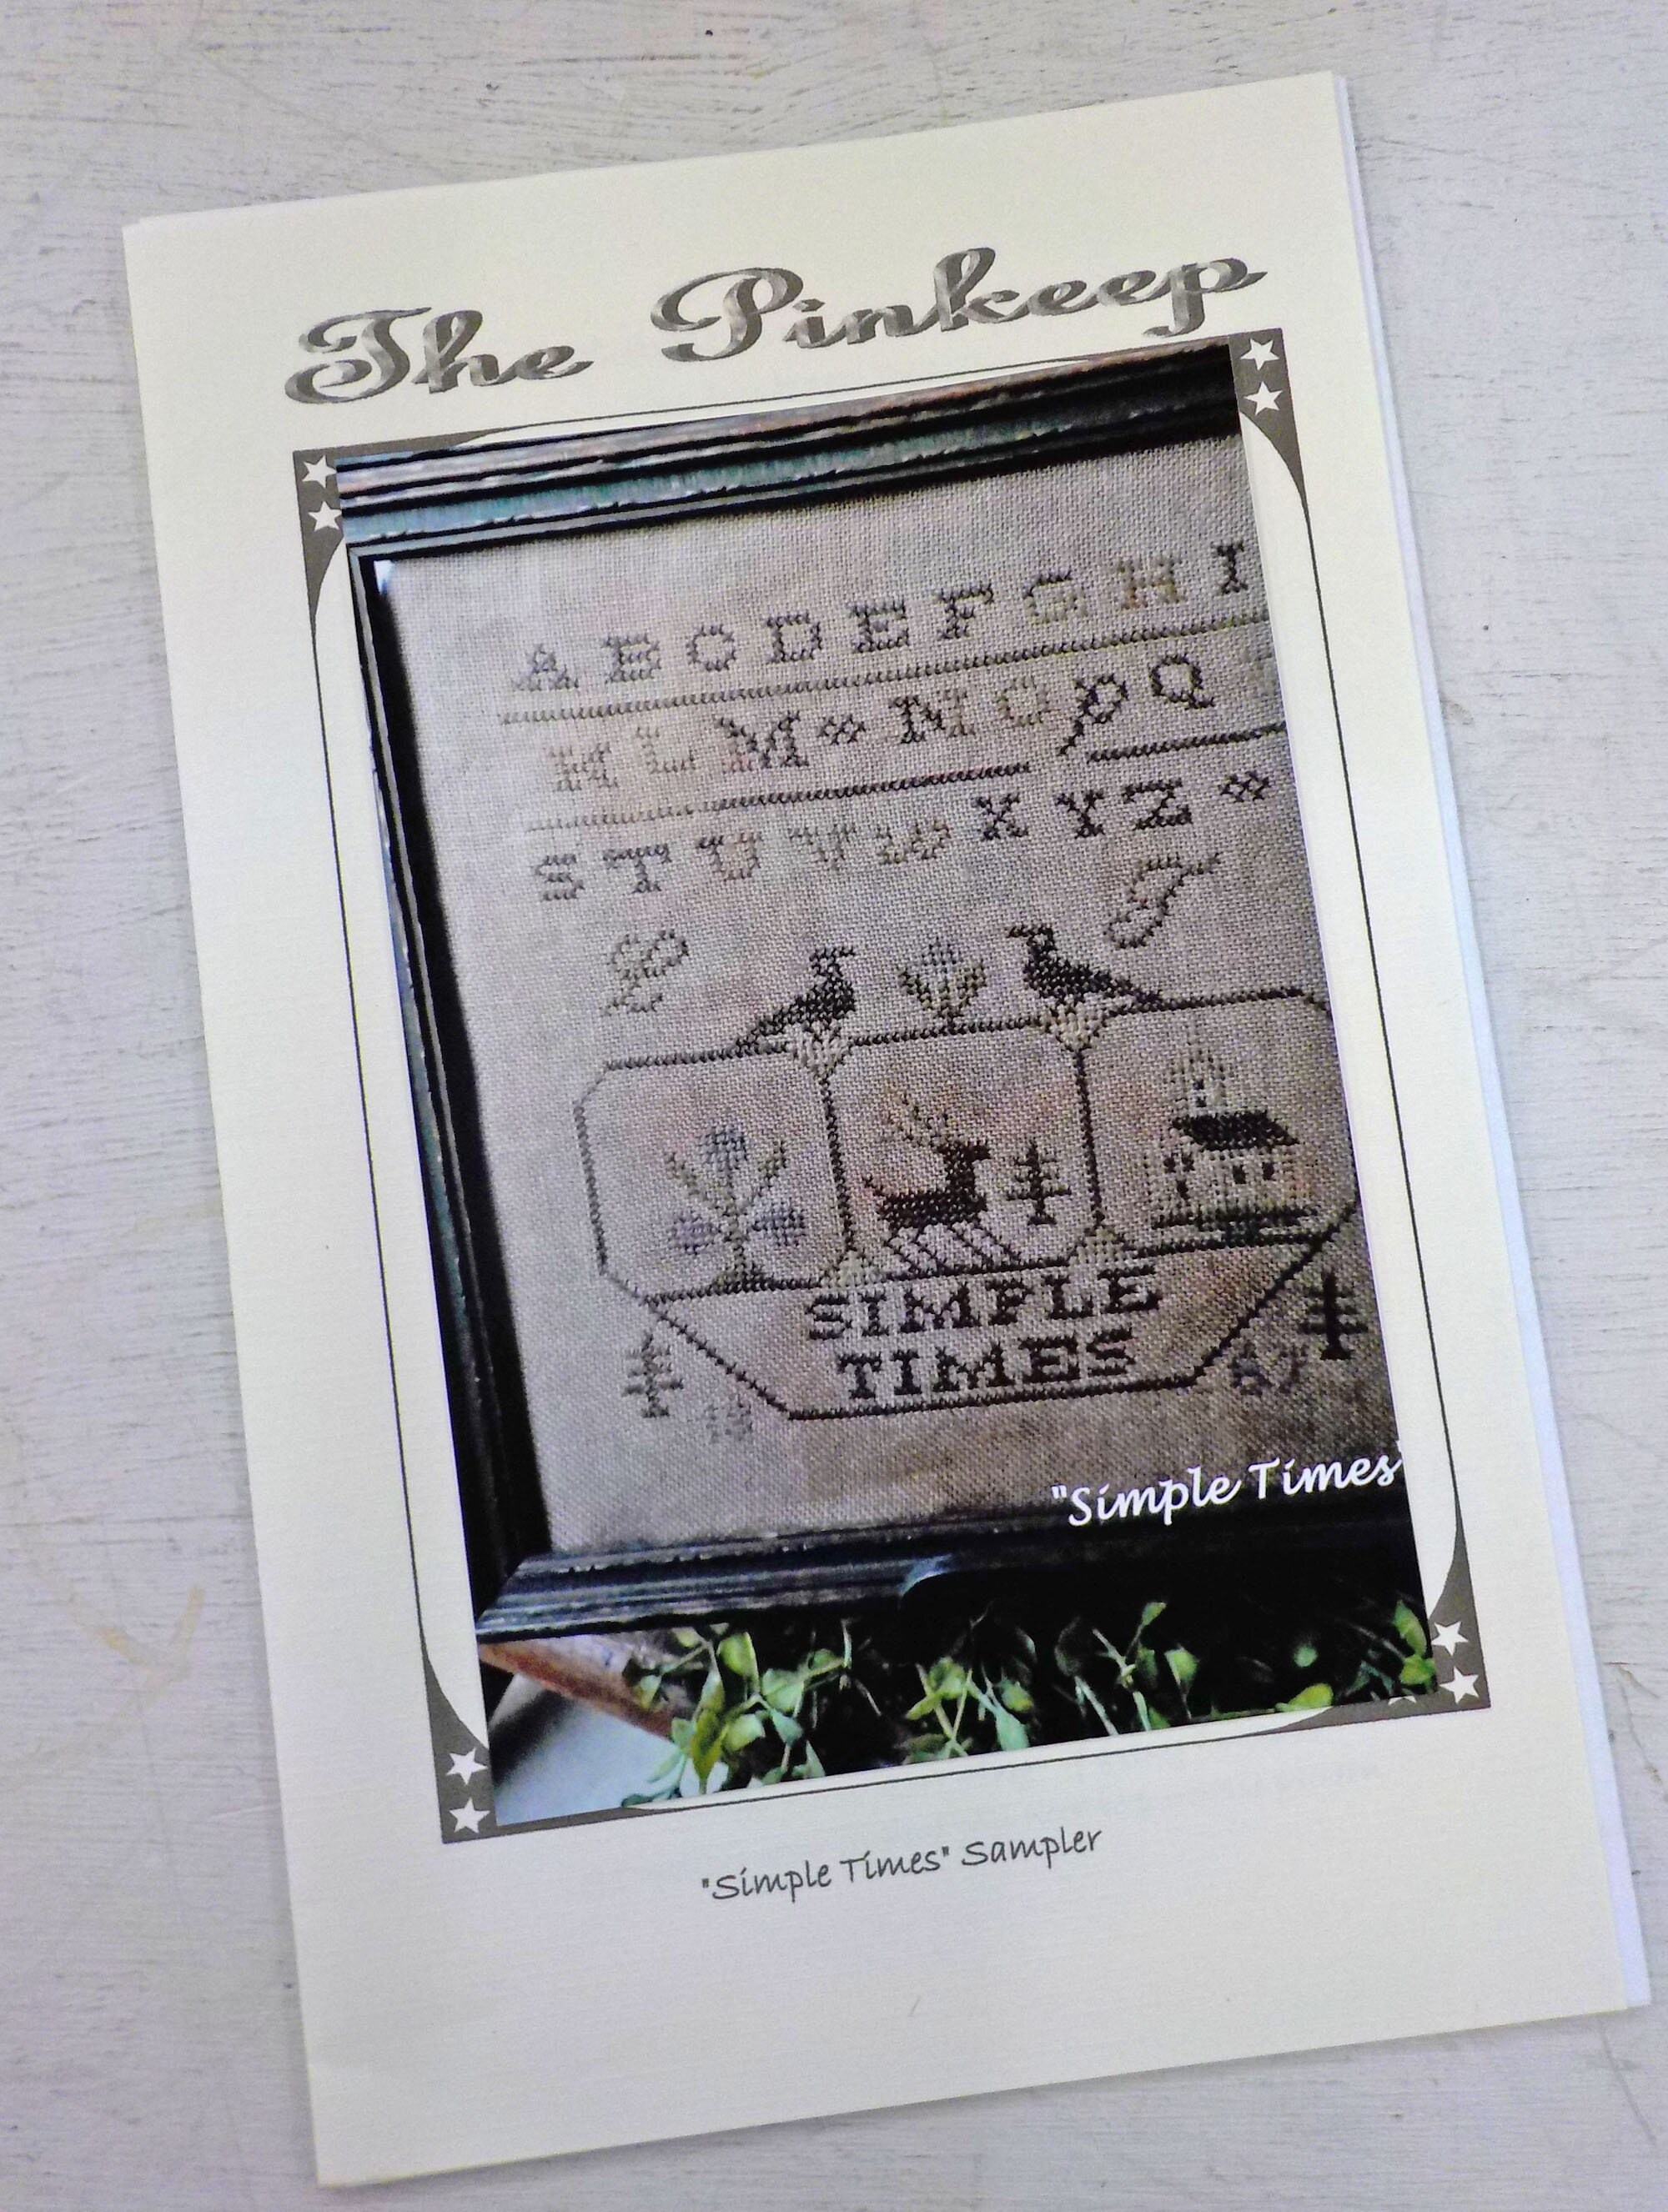 The Pinkeep
A B C D E F G H I
K L M N O P Q
S T U V W X Y Z
SIMPLE
TIMES
"Simple Times
"Simple Times" Sampler